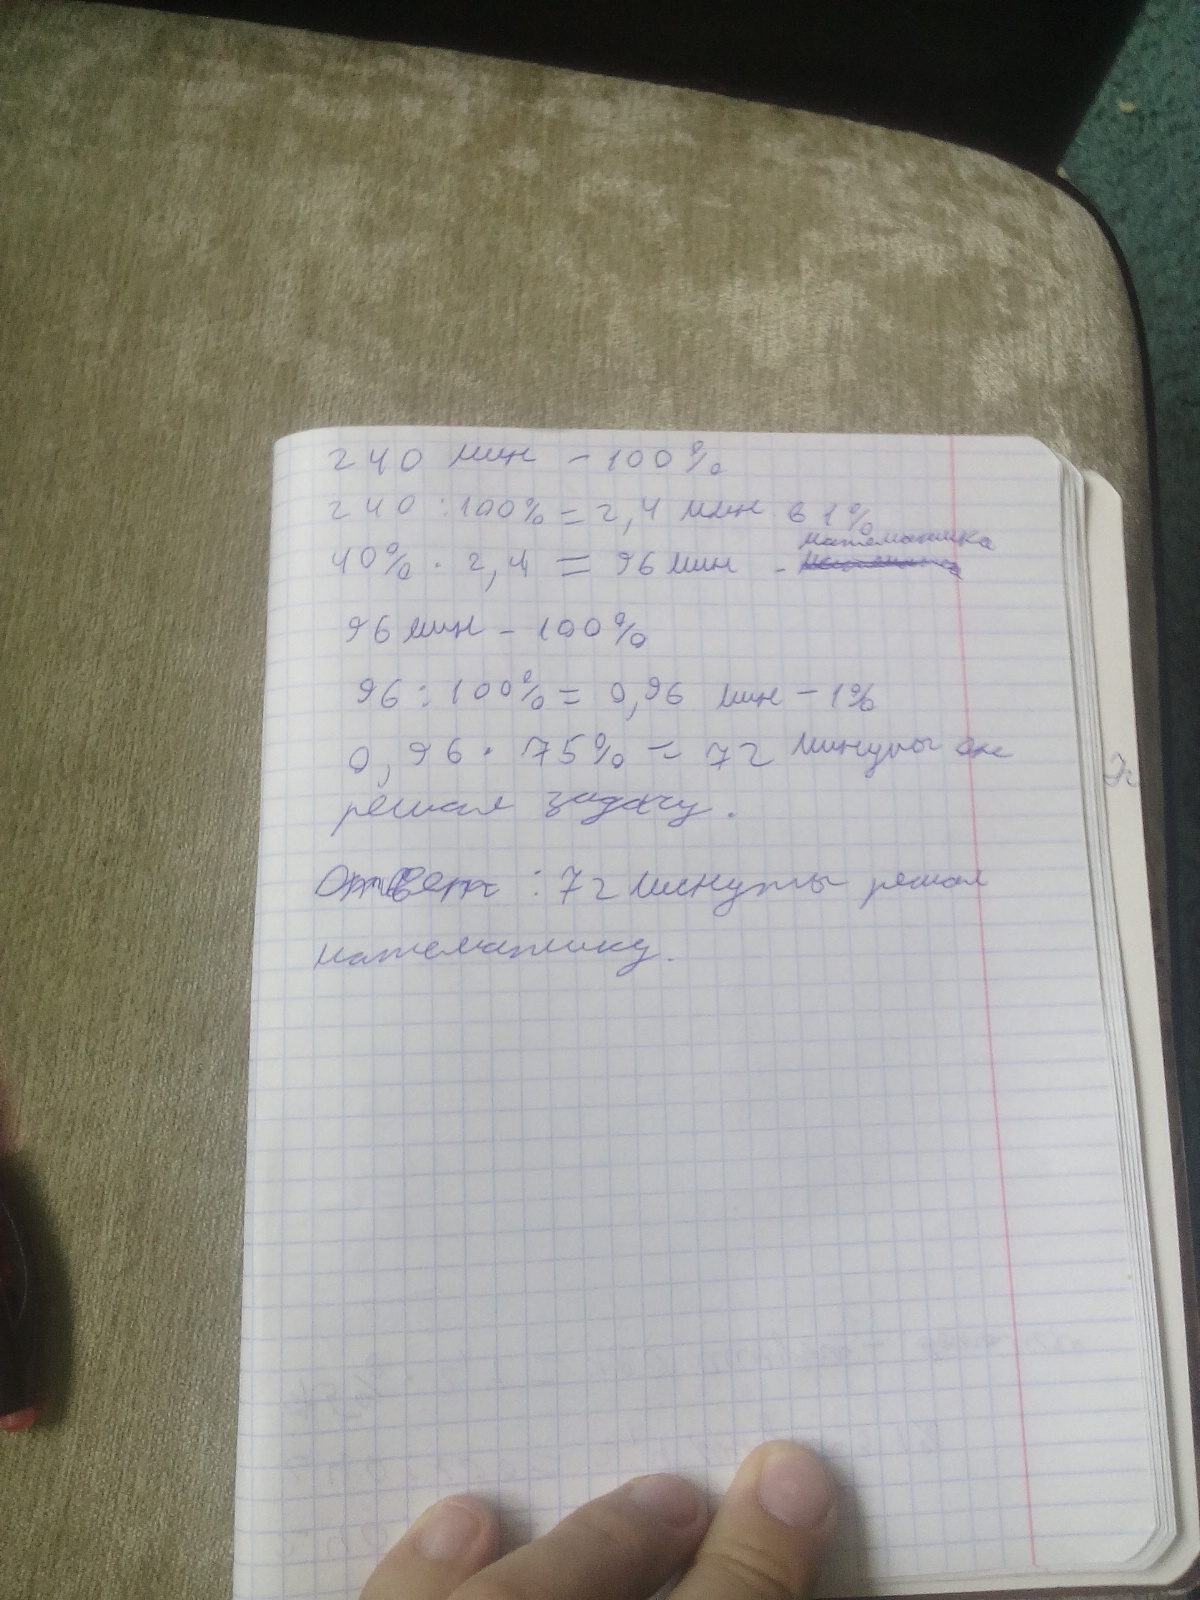 240 мин - 100%
240 : 100% = 2,4 мин в 1%
математика
40% · 2,4 = 96 мин -
96 мин - 100%
96 : 100% = 0,96 мин - 1%
0,96 · 75% = 72 минуты он
решал задачу.
Ответ : 72 минуты решал
математику.